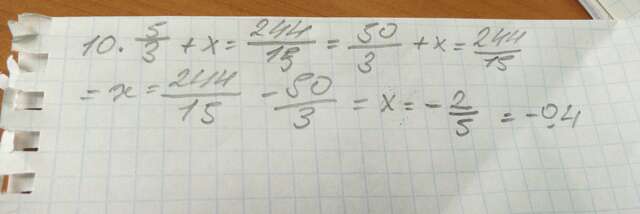 10. 5/3 + x = 244/15 = 50/3 + x = 244/15
= x = 244/15 - 50/3 = x = - 2/5 = -0,4